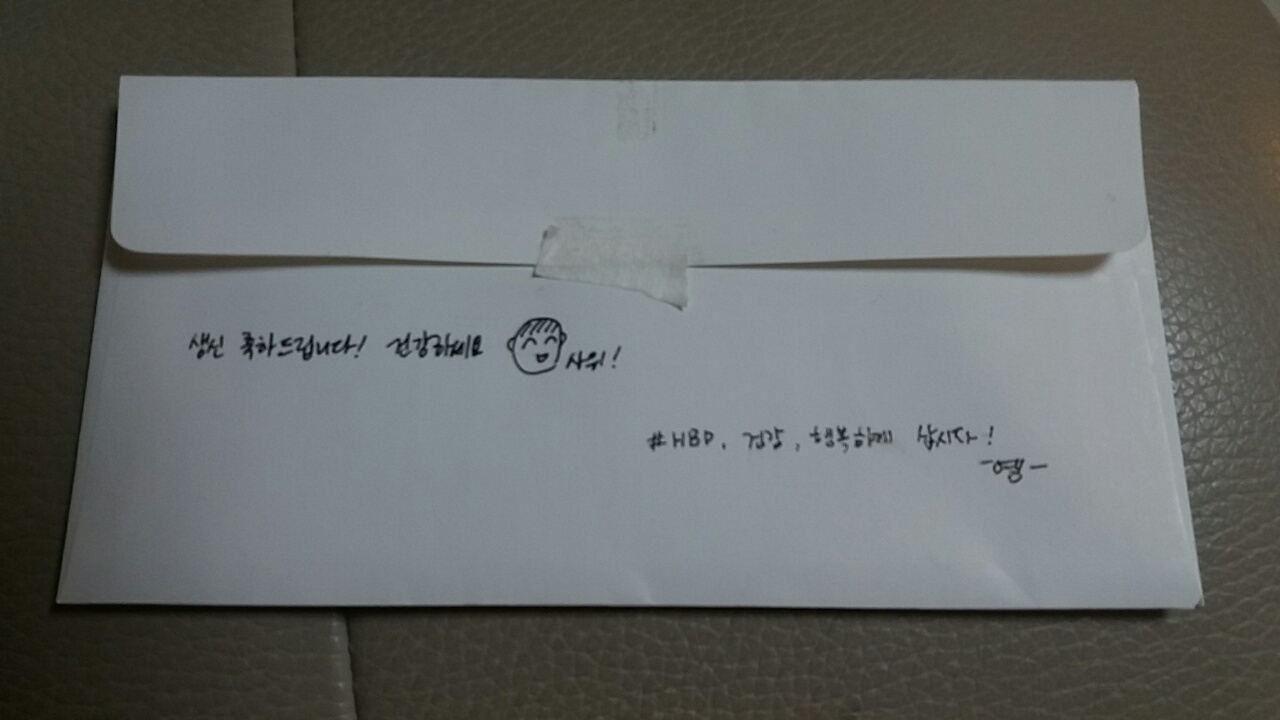 생신 축하드립니다! 건강하세요 사위!
#HBD, 건강, 행복하게 삽시다!
-옝-